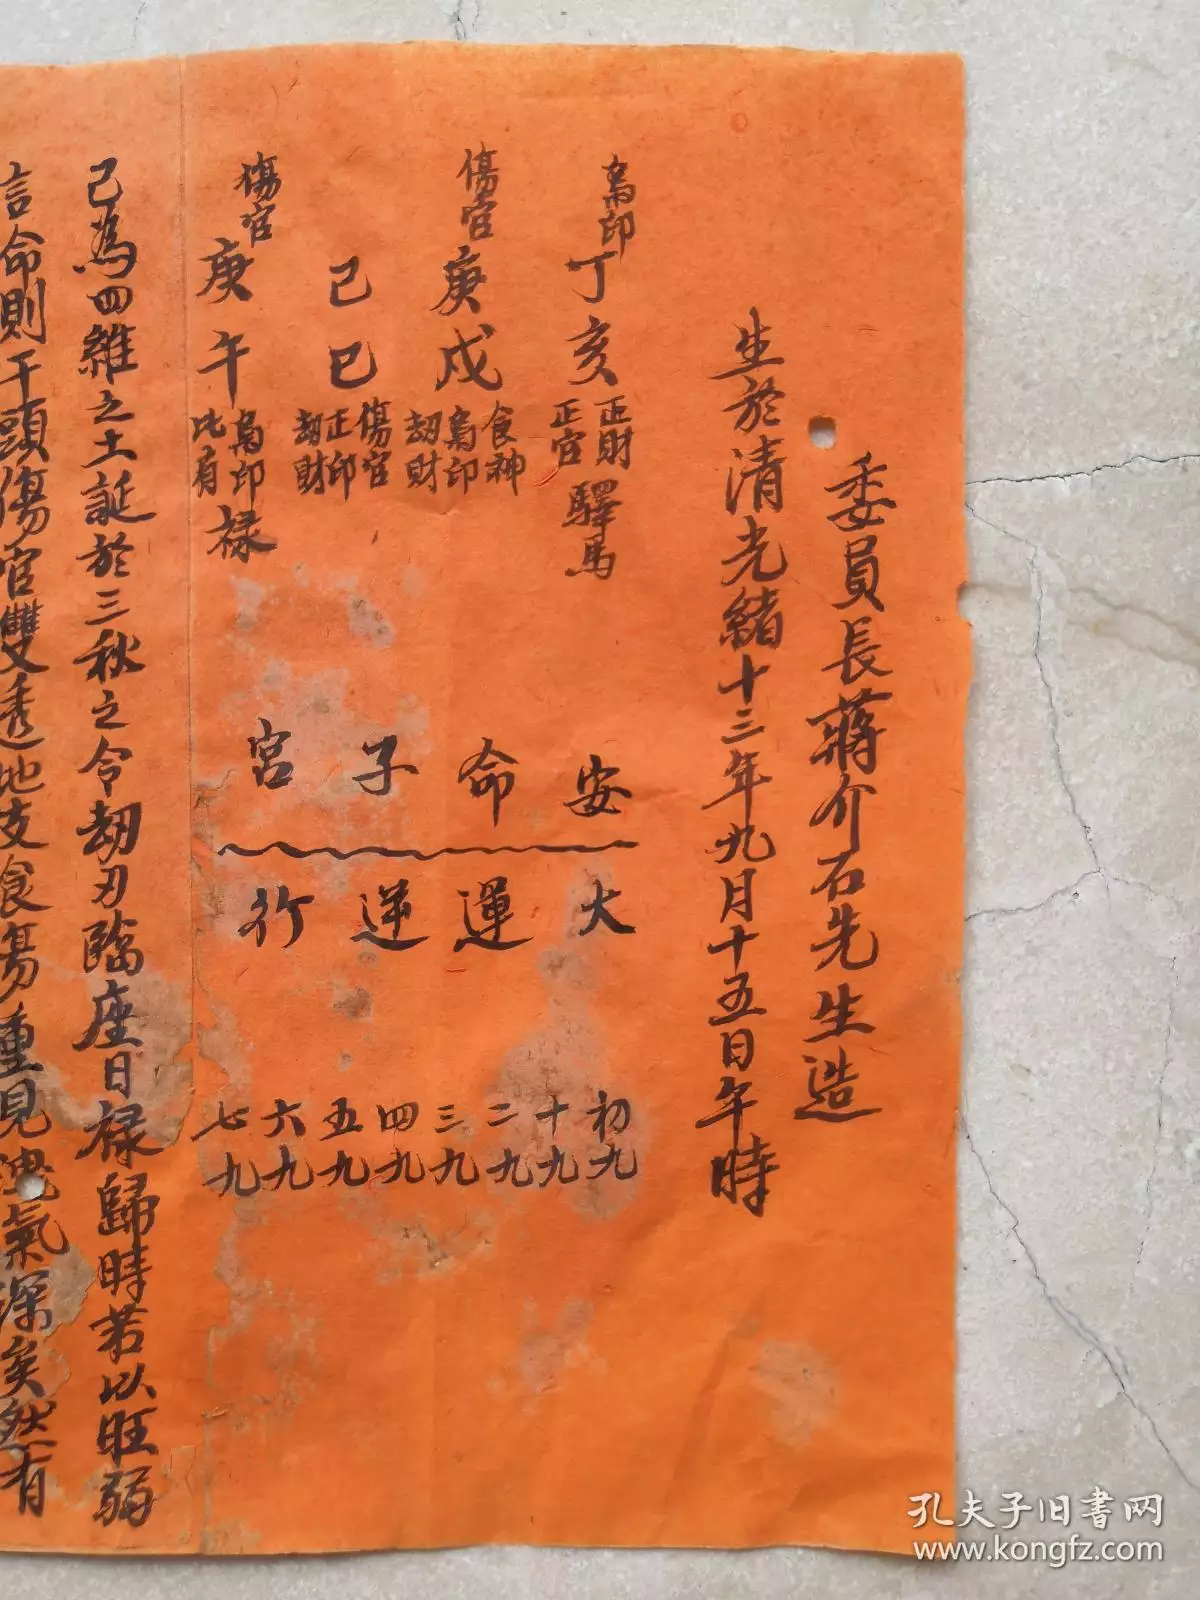 委員長蔣介石先生造
生於清光緒十三年九月十五日午時
梟印 丁亥 正財 正官 驛馬
傷官 庚戌 食神 梟印 劫財
己巳 傷官 正印 劫財
傷官 庚午 梟印 比肩 祿
安命子宮
大運逆行
初九
十九
二九
三九
四九
五九
六九
七九
己為四維之土誕於三秋之令劫刃臨座日祿歸時若以旺弱
言命則干頭傷官雙透地支食傷重見洩氣深矣然有
孔夫子旧书网
www.kongfz.com